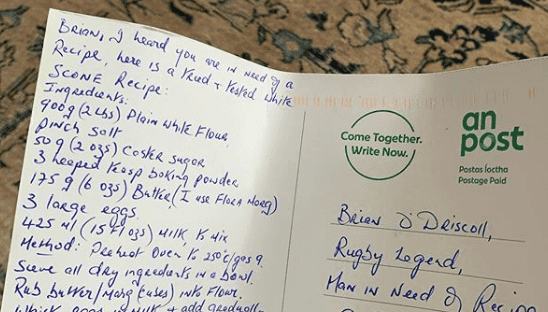 Brian, I heard you are in need of a
Recipe, here is a tried + tested White
Scone Recipe:
Ingredients:
900g (2 lbs) Plain White Flour
pinch salt
50g (2 ozs) Caster sugar
3 heaped teasp baking powder
175g (6 ozs) Butter (I use Flora Marg)
3 large eggs
425 ml (15 fl ozs) milk, to mix
Method: Preheat Oven to 250°c/gas 9.
Sieve all dry ingredients in a bowl.
Rub butter/marg (cubes) into Flour.
Whisk eggs + milk + add gradually
Come Together.
Write Now.
an
post
Postas íoctha
Postage Paid
Brian O'Driscoll,
Rugby Legend,
Man in Need of Recipe